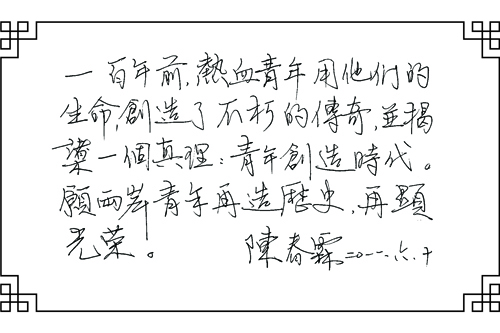 一百年前,熱血青年用他们的
生命,創造了不朽的傳奇,並揭
櫫一個真理:青年創造時代。
願兩岸青年再造歷史,再顯
光荣。 陳春霖 二〇一一.六.十